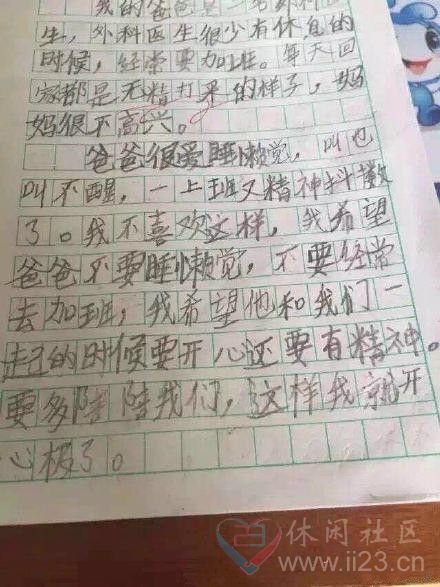 我的爸爸是一名外科医
生，外科医生很少有休息的
时候，经常要加班。每天回
家都是无精打采的样子，妈
妈很不高兴。
爸爸很爱睡懒觉，叫也
叫不醒，一上班又精神抖擞
了。我不喜欢这样，我希望
爸爸不要睡懒觉，不要经常
去加班，我希望他和我们一
起的时候要开心还要有精神。
要多陪陪我们，这样我就开
心极了。
休闲社区
www.ii23.cn